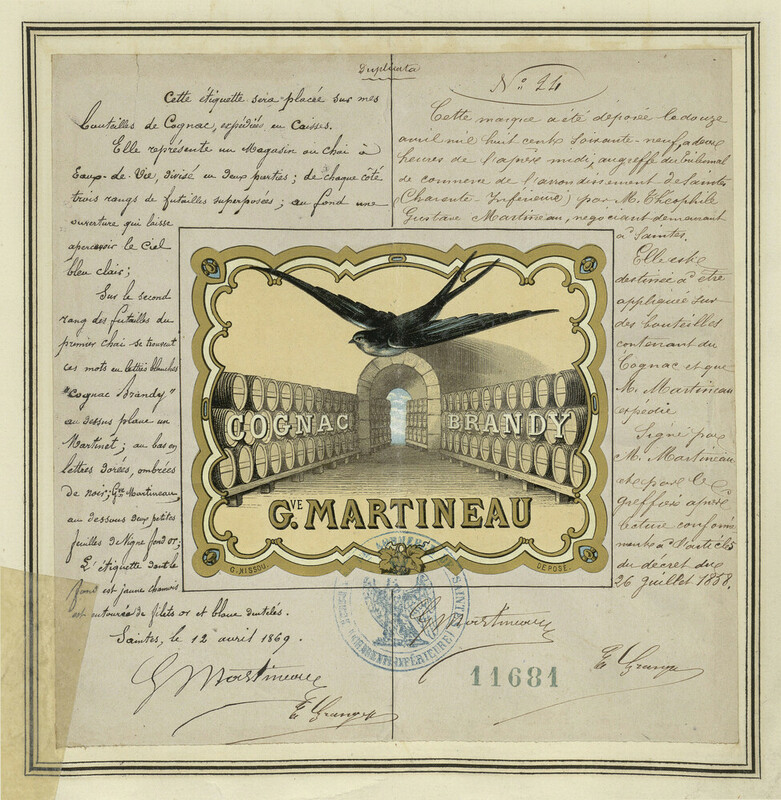 Duplicata
Cette étiquette sera placée sur mes
bouteilles de Cognac, expédiées en Caisses.
Elle représente un Magasin ou chai à
Eaux-de-Vie, divisé en deux parties; de chaque côté
trois rangs de futailles superposées; au fond une
ouverture qui laisse
apercevoir le Ciel
bleu clair;
Sur le second
rang des futailles du
premier chai se trouvent
ces mots en lettres blanches
"Cognac Brandy"
au dessus plane un
Martinet; au bas en
lettres dorées, ombrées
de noir; Gve Martineau
au dessous deux petites
feuilles de Vigne fond or;
L'étiquette dont le
fond est jaune chamois
est entourée de filets or et bleu dentelés.
Saintes, le 12 avril 1869.
G Martineau
E Granger
No 24
Cette marque a été déposée le douze
avril mil huit cent soixante-neuf, à deux
heures de l'après midi, au greffe du tribunal
de commerce de l'arrondissement de Saintes
(Charente-Inférieure) par M. Théophile
Gustave Martineau, négociant demeurant
à Saintes.
Elle est
destinée à être
appliquée sur
des bouteilles
contenant du
Cognac et que
M. Martineau
expédie
Signé par
M. Martineau
et par le
greffier après
lecture conformé-
ment à l'article
du décret du
26 Juillet 1858.
G Martineau
E Granger
COGNAC BRANDY
GVE MARTINEAU
G. NISSOU
DÉPOSÉ
SAINTES
(CHARENTE INFÉRIEURE)
11681